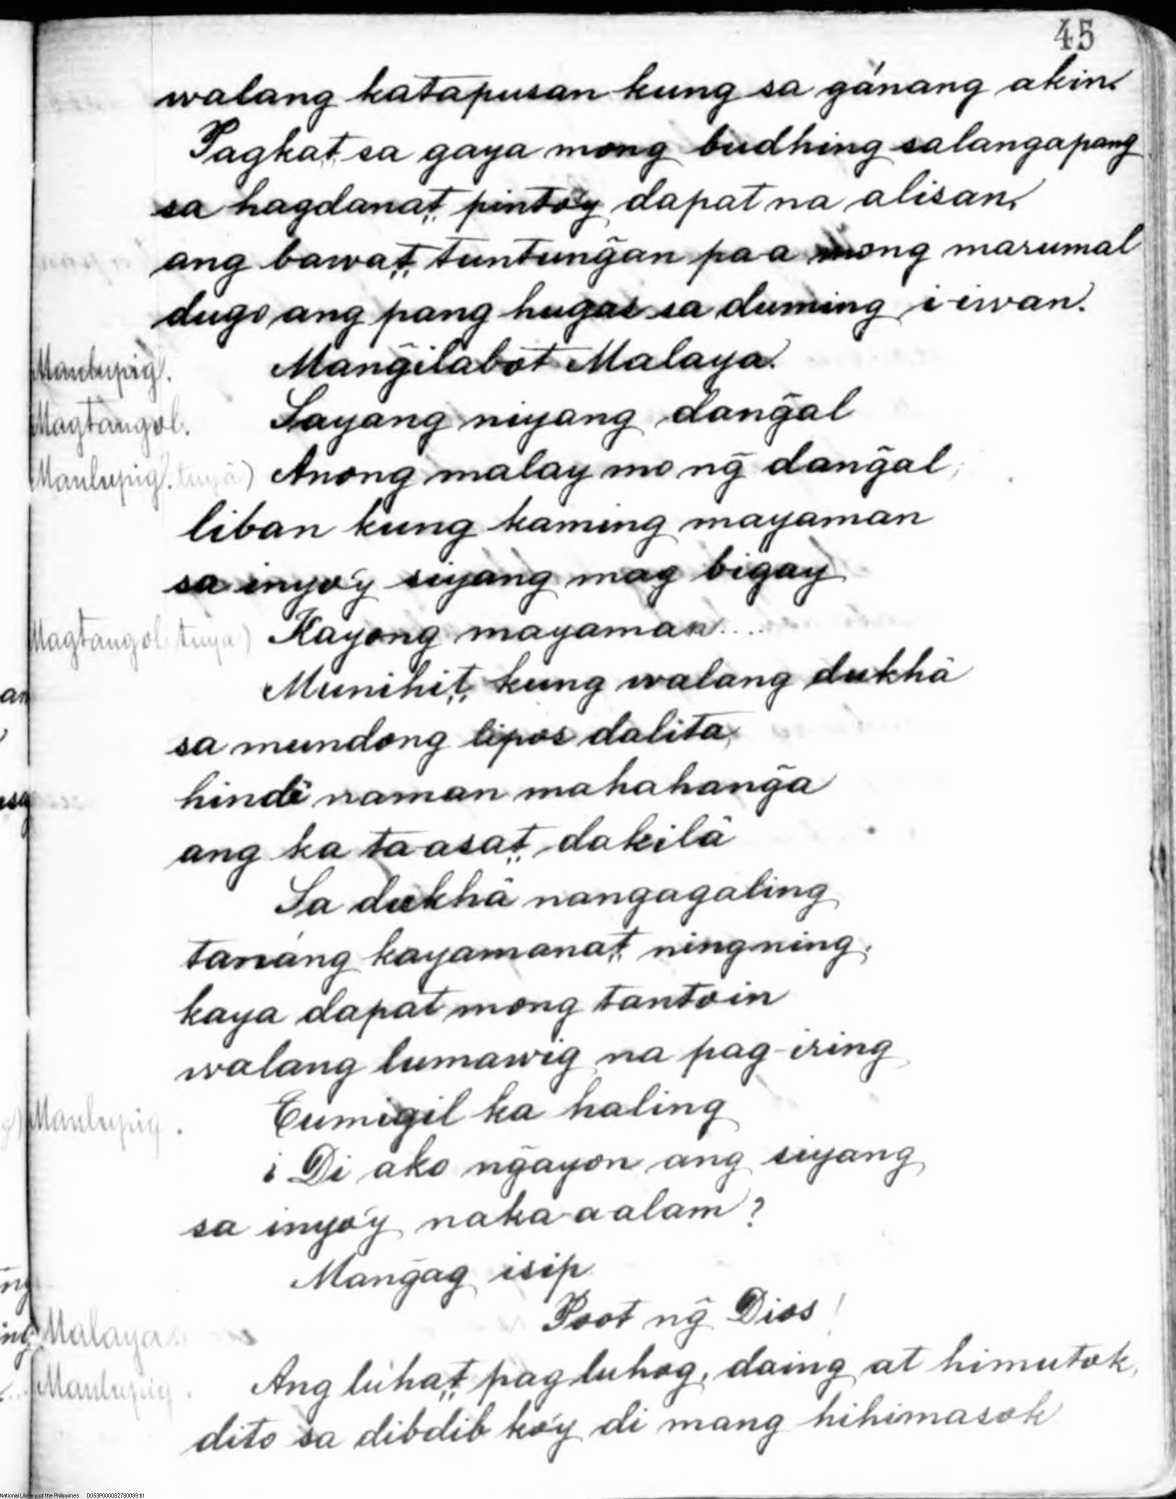 45
walang katapusan kung sa gánang akin.
Pagkat sa gaya mong budhing salangapang
sa hagdanat pinto'y dapat na alisan,
ang bawat tuntung̃an paa mong marumal
dugo ang pang hugas sa duming i-iwan.
Maulupig. Mang̃ilabot Malaya.
Magtangol. Sayang niyang dang̃al
Maulupig. tuyâ) Anong malay mo ng̃ dang̃al,
liban kung kaming mayaman
sa inyo'y siyang mag bigay
Magtangol tuya) Kayong mayaman....
Munihit, kung walang dukhâ
sa mundong lipos dalita,
hindî naman mahahang̃a
ang ka taasat dakilâ
Sa dukhâ nangagaling
tanáng kayamanat ningning,
kaya dapat mong tantoin
walang lumawig na pag-iring
Maulupig. Tumigil ka haling
¿Di ako ng̃ayon ang siyang
sa inyo'y naka-aalam?
Mang̃ag isip
Poot ng̃ Dios!
Malaya
Maulupig. Ang lúhat pagluhog, daing at himutok,
dito sa dibdib ko'y di mang hihimasok
National Library of the Philippines